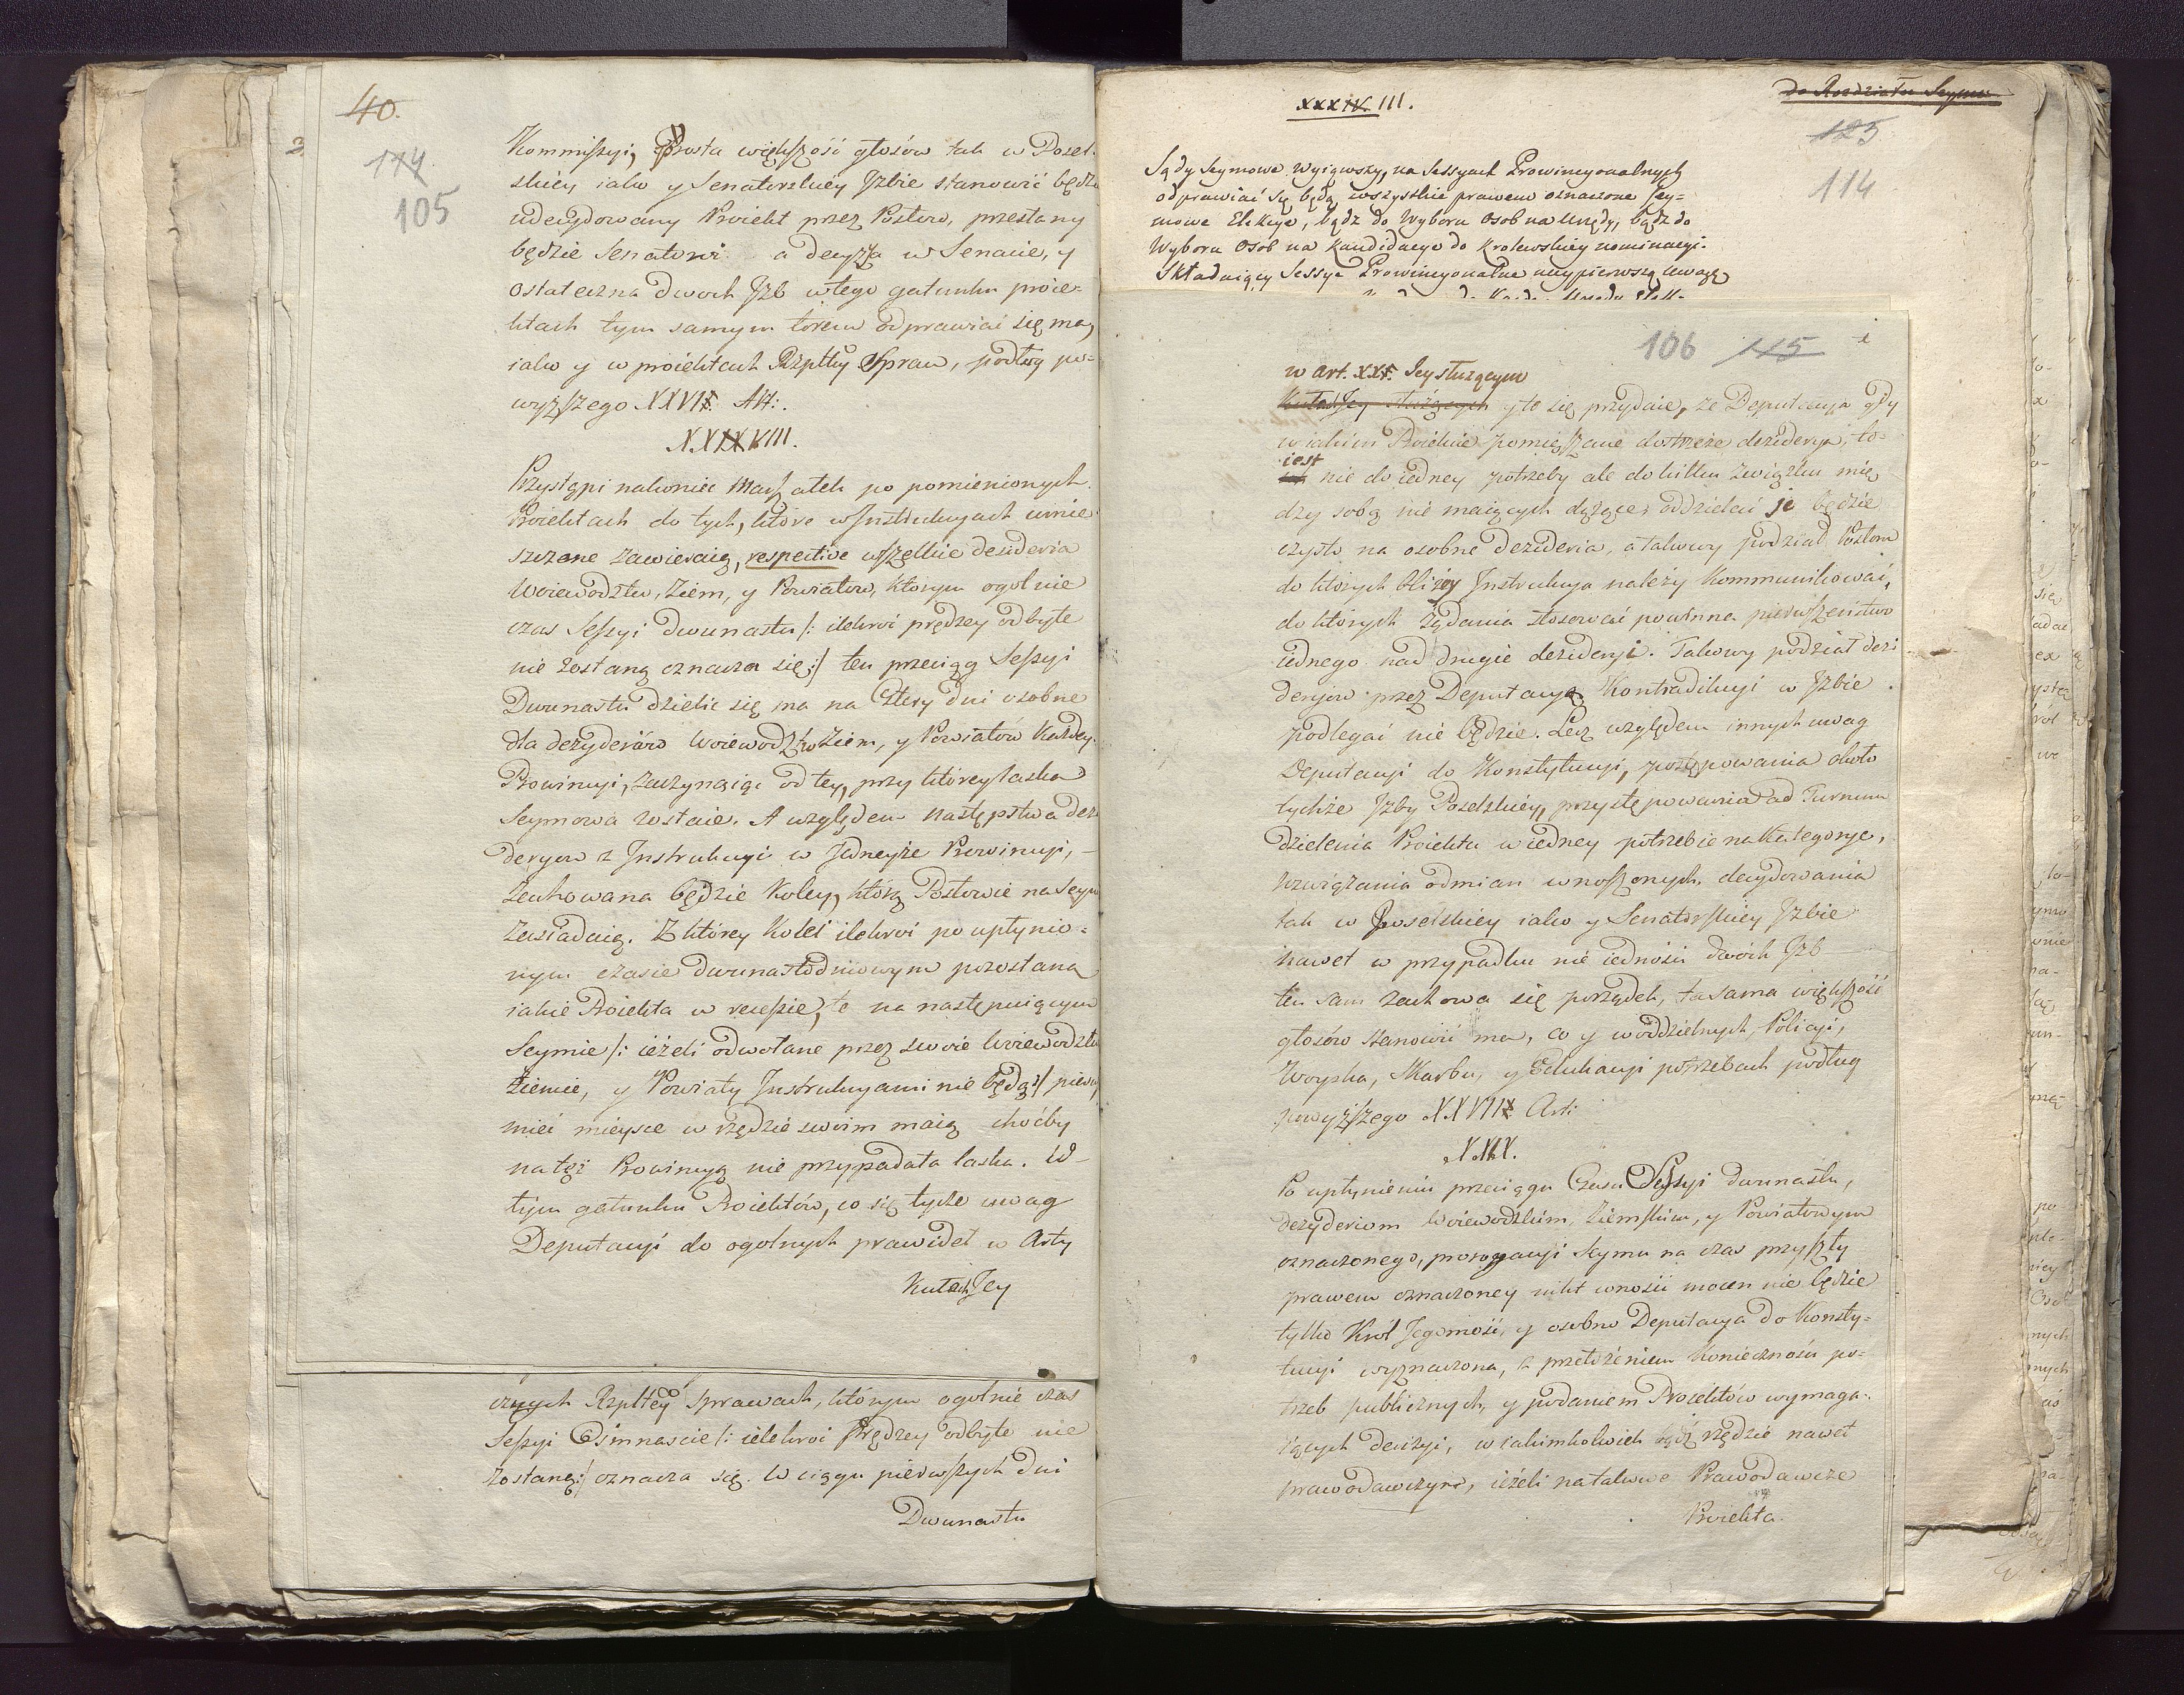 40.
114
105
Kommissyi, Prosta większość głosów tak w Posel-
skiey iako y Senatorskiey Jzbie stanowić będzie
udecydowany Proiekt przez Posłow, przesłany
będzie Senatowi a decyzja w Senacie, y
ostateczna dwoch Jzb w tego gatunku proie-
ktach tym samym torem odprawiać się ma,
iako y w proiektach Rzpltey Spraw, podług po-
wyższego XXVII. Art:.
XXVIII.
Przystąpi nakoniec Marszałek po pomienionych
Proiektach do tych, które w Jnstrukcyach umie-
szczone zawieraią, respective wszelkie desideria
Woiewodztw, Ziem, y Powiatow, ktorym ogolnie
czas Sessyi dwunastu /: ilekroć prędzey odbyte
nie zostaną oznacza się :/ ten przeciąg Sessyi
Dwunastu dzielić się ma na Cztery dni osobne
dla dezyderiów Woiewodztw Ziem, y Powiatów każdey
Prowincyi, zaczynaiąc od tey, przy którey laska
Seymowa zostaie. A względem następstwa dezy-
deryow z Jnstrukcyi w Jedneyże Prowincyi,
zachowana będzie Koley, którą Posłowie na Seym
zasiadaią. Z którey Kolei ilekroć po upłynio-
nym czasie dwunastodniowym pozostaną
iakie Proiekta w recessie, te na następuiącym
Seymie /: ieżeli odwołane przez swoie Woiewodztwa
ziemie, y Powiaty Jnstrukcyami nie będą :/ pierwsze
mieć mieysce w rzędzie swoim maią choćby
na tęż Prowincyą nie przypadała laska. W
tym gatunku Proiektów, co się tycze uwag
Deputacyi do ogolnych prawideł w Arty
cznych Rzpltey sprawach, którym ogolnie czas
Sessyi Osimnaście /: ielekroć prędzey odbyte nie
zostaną :/ oznacza się. W ciągu pierwszych dni
Dwunastu
XXXIII.
do Rozdziału Seymu
125
114
Sądy Seymowe wyiąwszy, na Sessyach Prowincyonalnych
odprawiać się będą wszystkie prawem oznaczone sey-
mowe Elekcye, bądz do Wyboru Osob na Urzędy, bądz do
Wyboru Osob na Kandidacye do Krolewskiey nominacyi.
Składaiący Sessye Prowincyonalne naypierwszą uwagę
106 115
w Art. XXI. Jey służącym
y to się przydaie, że Deputacya gdy
w iakim Proiekcie pomięszane dostrzeże dezyderya, to-
iest nie do iedney potrzeby ale do kilku związku mię-
dzy sobą nie maiących dążące, oddzielać je będzie
czysto na osobne Dezideria, a takowy podział Posłom
do których bliżey Jnstrukcya należy Kommunikować,
do których żądania stosować powinna pierwszeństwo
iednego nad drugie deziderji. Takowy podział dezi-
deryow przez Deputacyą Kontradikcyi w Jzbie
podlegać nie będzie. Lecz względem innych uwag
Deputacyi do Konstytucyi, postępowania około
tychże Jzby Poselskiey, przystępowania ad Turnum
dzielenia Proiektu w iedney potrzebie na Kategorye,
rozwiązania odmian wnoszonych, decydowania
tak w Poselskiey iako y Senatorskiey Jzbie
nawet w przypadku nie iedności dwóch Jzb
ten sam zachowa się porządek, ta sama większość
głosów stanowić ma, co y w oddzielnych Policyi,
Woyska, Skarbu, y Edukacyi potrzebach podług
powyższego XXVII Art:
XXIX.
Po upłynieniu przeciągu Czasu Sessyi dwunastu,
dezyderiom Woiewodzkim, Ziemskim, y Powiatowym
oznaczonego, prorogacyi Seymu na czas przyszły
prawem oznaczoney nikt wnosić mocen nie będzie
tylko Król Jegomość, y osobno Deputacya do Konsty-
tucyi wyznaczona, z przełożeniem Konieczności po-
trzeb publicznych, y podaniem Proiektów wymaga-
iących decizyi, w iakimkolwiek bądź rzędzie nawet
prawodawczym, ieżeli na takowe Prawodawcze
Proiekta.